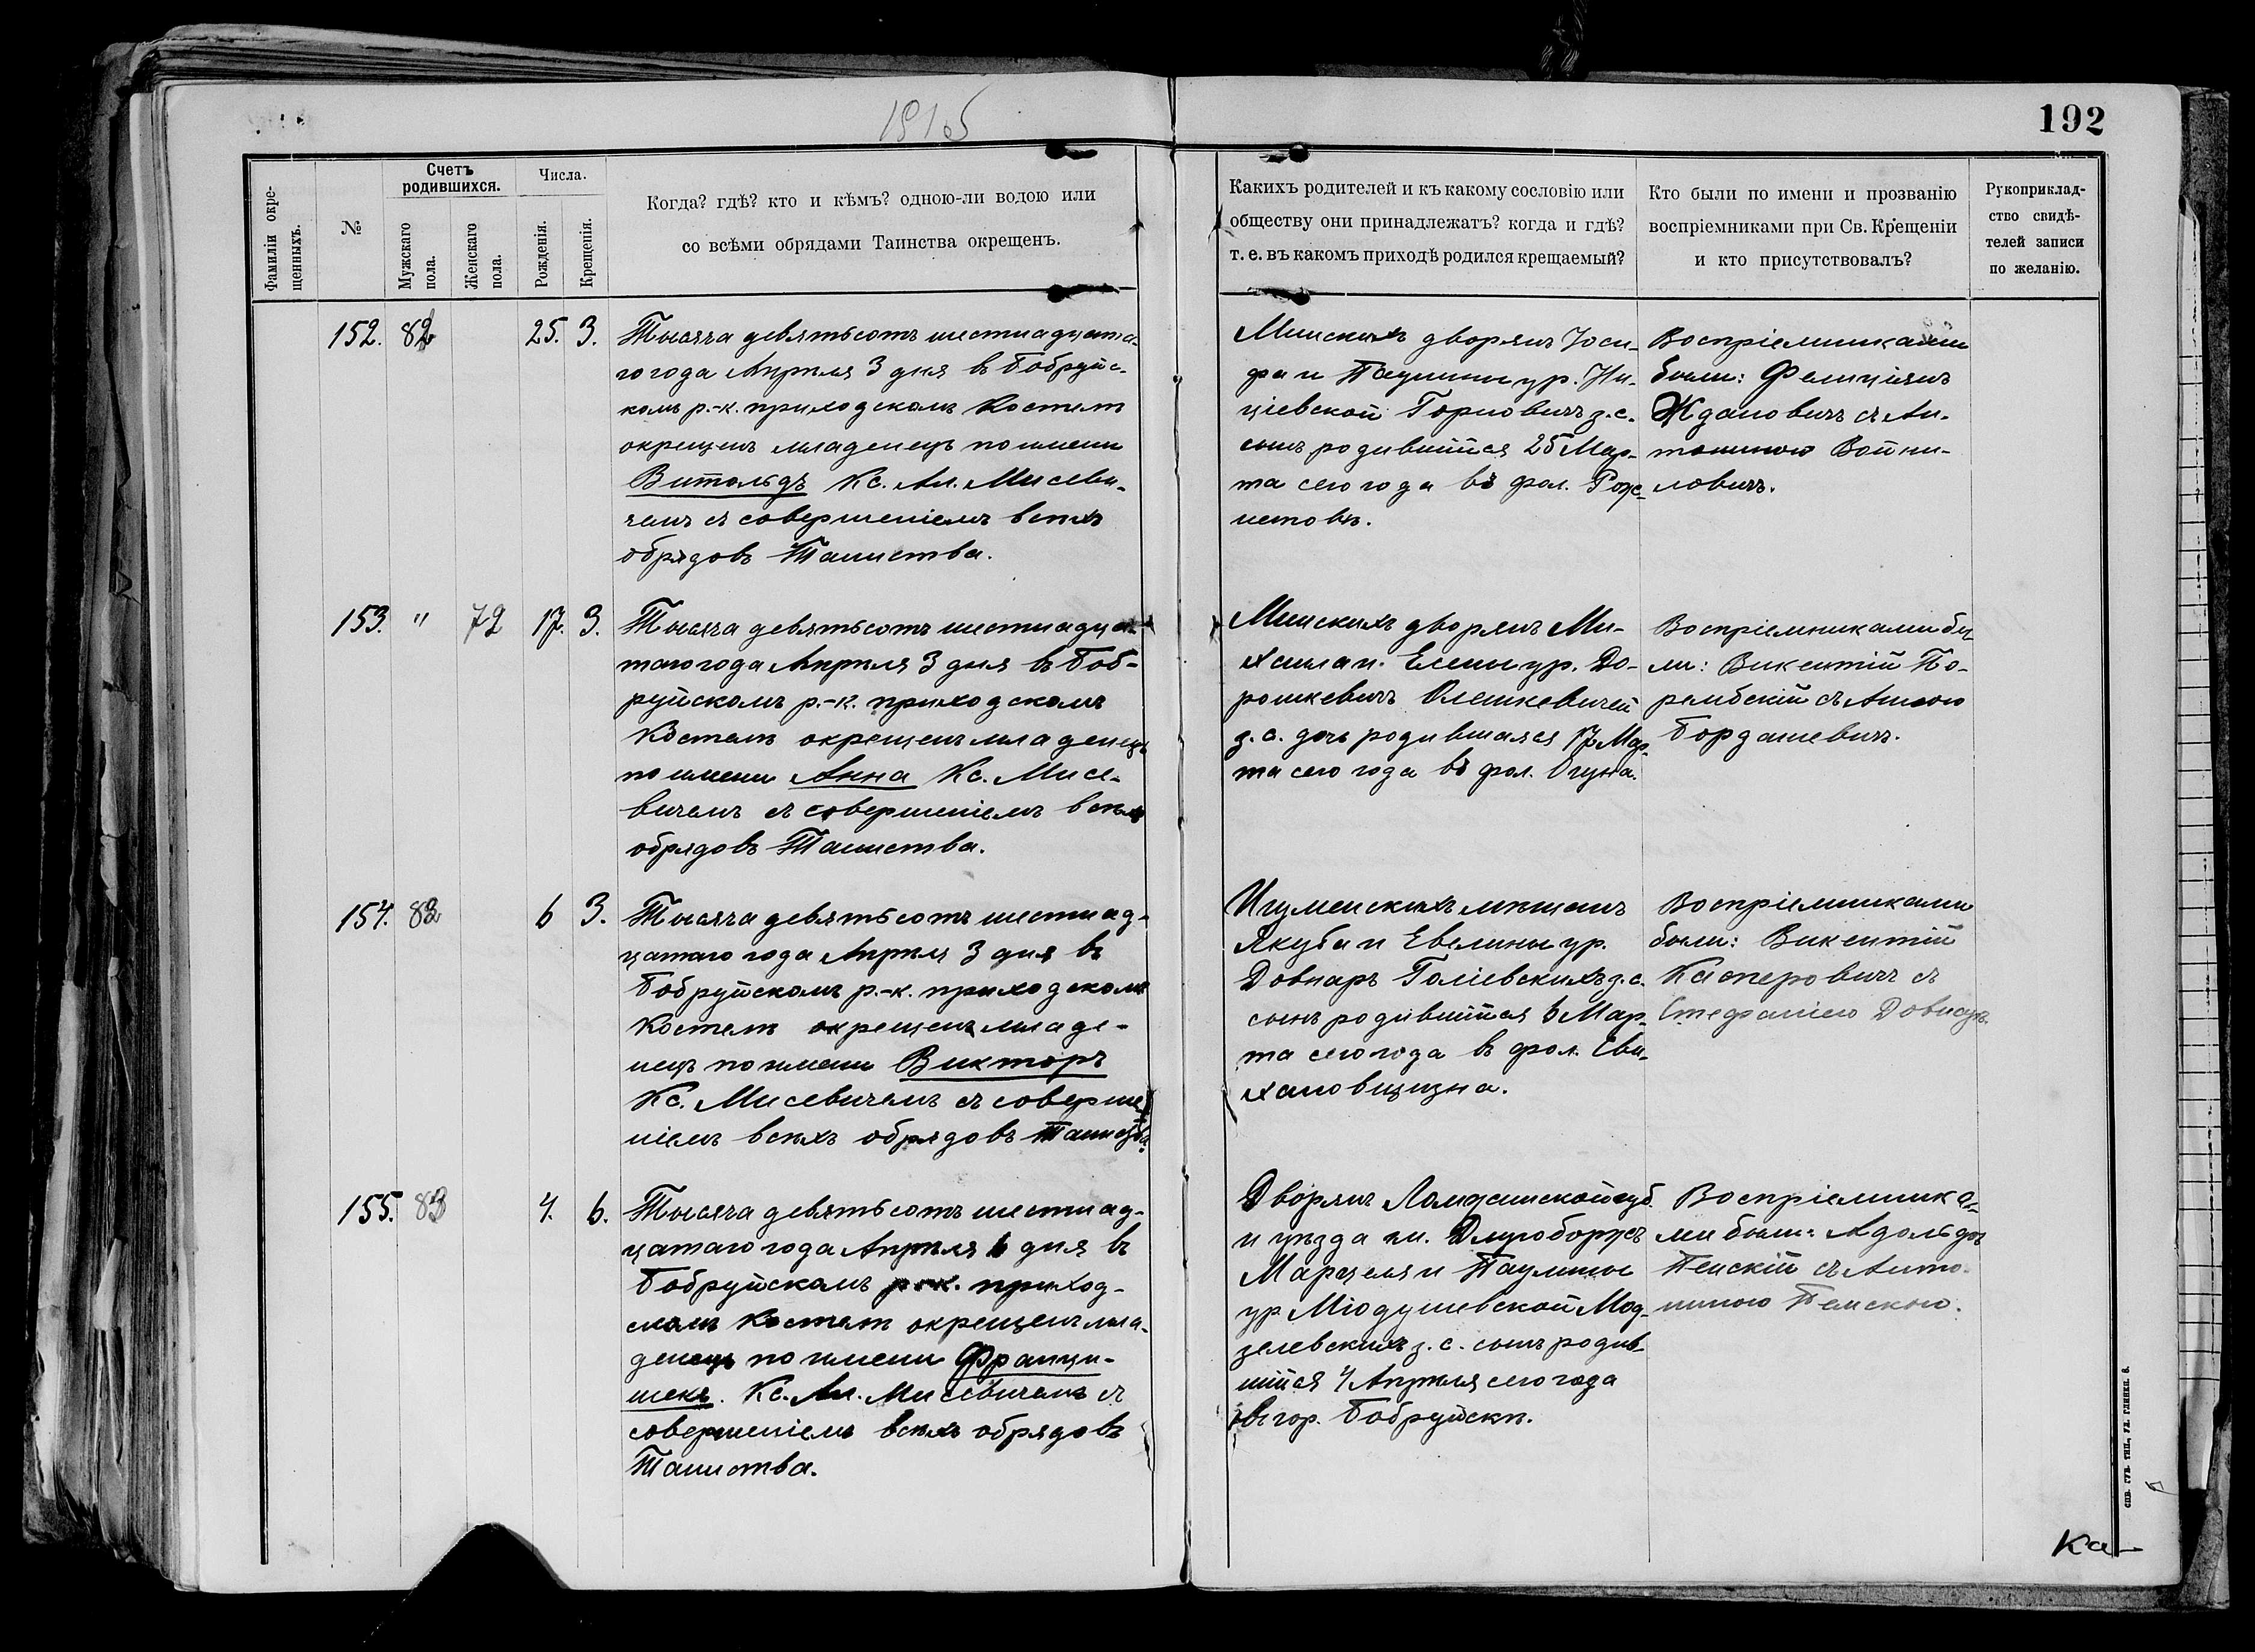 1916
192
Фамиліи окре-
щенныхъ.
№
Счетъ
родившихся.
Мужскаго
пола.
Женскаго
пола.
Числа.
Рожденія.
Крещенія.
Когда? гдѣ? кто и кѣмъ? одною-ли водою или
со всѣми обрядами Таинства окрещенъ.
Какихъ родителей и къ какому сословію или
обществу они принадлежатъ? когда и гдѣ?
т. е. въ какомъ приходѣ родился крещаемый?
Кто были по имени и прозванію
воспріемниками при Св. Крещеніи
и кто присутствовалъ?
Рукоприклад-
ство свидѣ-
телей записи
по желанію.
152. 82 25. 3.
Тысяча девятьсотъ шестнадцата-
го года Апрѣля 3 дня въ Бобруйс-
комъ р.-к. приходскомъ Костелѣ
окрещенъ младенецъ по имени
Витольдъ Кс. Ал. Мисеви-
чемъ съ совершеніемъ всѣхъ
обрядовъ Таинства.
Минскихъ дворянъ Іоси-
фа и Паулины ур.
Горновичъ з. с.
сынъ родившійся 25 Мар-
та сего года въ фол.
Воспріемниками
были: Фелиціянъ
Ждановичъ съ Ан-
тониною Войни-
ловичъ.
153. " 72 17. 3.
Тысяча девятьсотъ шестнадца-
таго года Апрѣля 3 дня въ Боб-
руйскомъ р.-к. приходскомъ
Костелѣ окрещенъ младенецъ
по имени Анна Кс. Мисе-
вичемъ съ совершеніемъ всѣхъ
обрядовъ Таинства.
Минскихъ дворянъ Ми-
хаила и Елены ур. До-
рошкевичъ Олешкевичей
з. с. дочь родившаяся 17 Мар-
та сего года въ фол.
Воспріемниками бы-
ли: Викентій По-
рембскій съ Анною
Бордашевичъ.
154. 82 6 3.
Тысяча девятьсотъ шестнад-
цатаго года Апрѣля 3 дня въ
Бобруйскомъ р.-к. приходскомъ
Костелѣ окрещенъ младе-
нецъ по имени Викторъ
Кс. Мисевичемъ съ соверше-
ніемъ всѣхъ обрядовъ Таинства.
Игуменскихъ мѣщанъ
Якуба и Евелины ур.
Довнаръ Голіевскихъ з. с.
сынъ родившійся 6 Мар-
та сего года въ фол. Еви-
хановщизна.
Воспріемниками
были: Викентій
Касперовичъ съ
Стефаніею Довнаръ.
155. 83 4. 6.
Тысяча девятьсотъ шестнад-
цатаго года Апрѣля 6 дня въ
Бобруйскомъ р.-к. приход-
скомъ Костелѣ окрещенъ мла-
денецъ по имени Франци-
шекъ. Кс. Ал. Мисевичемъ съ
совершеніемъ всѣхъ обрядовъ
Таинства.
Дворянъ Ломжинской губ.
и уѣзда гм. Длугоборжъ
Марцеля и Паулины
ур Міодушевской Мод-
зелевскихъ з. с. сынъ родив-
шійся 4 Апрѣля сего года
въ гор. Бобруйскѣ.
Воспріемника-
ми были: Адольфъ
Пенскій съ Анто-
ниною Пенскою.
Ка-